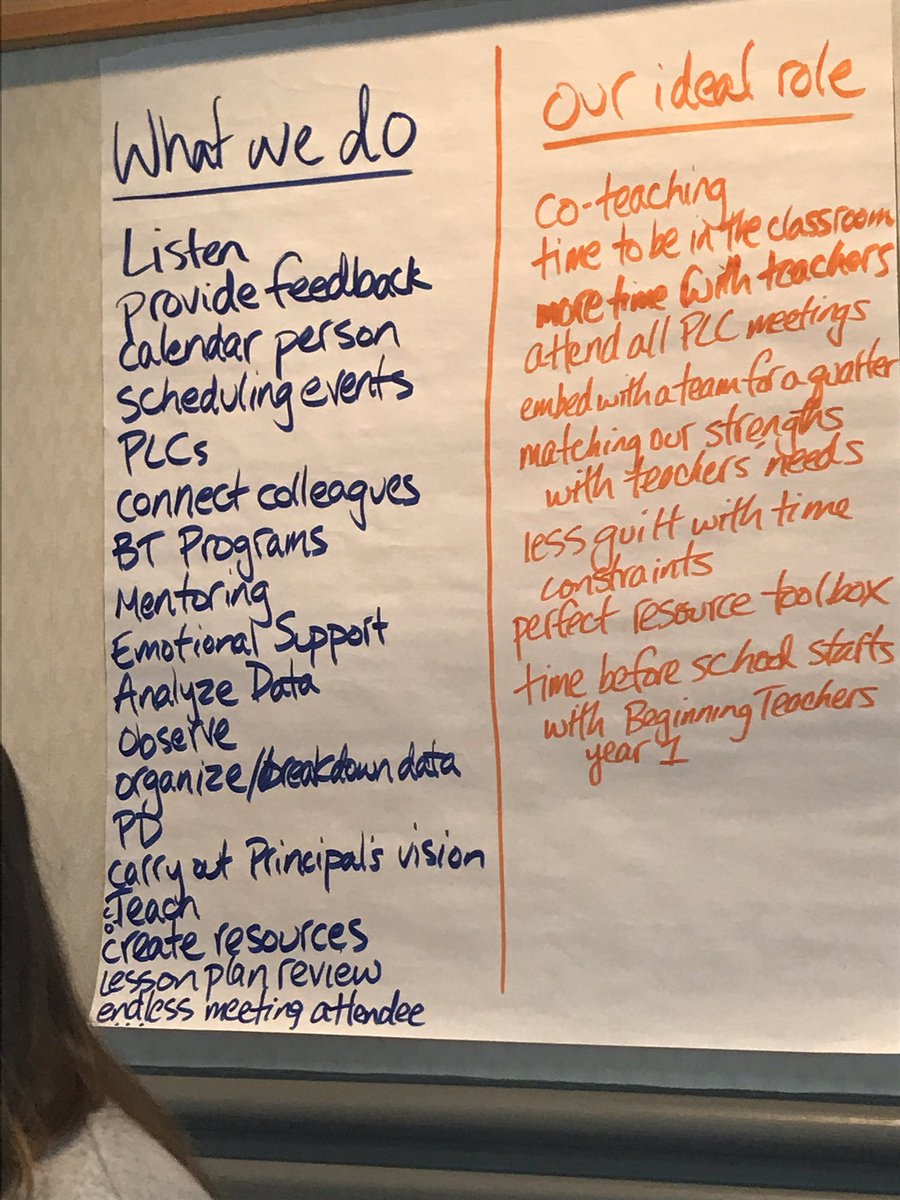 What we do
Listen
provide feedback
calendar person
scheduling events
PLCs
connect colleagues
BT Programs
Mentoring
Emotional Support
Analyze Data
Observe
organize/breakdown data
PD
carry out Principal's vision
Teach
create resources
lesson plan review
endless meeting attendee
our ideal role
co-teaching
time to be in the classroom
more time with teachers
attend all PLC meetings
embed with a team for a quarter
matching our strengths
with teachers' needs
less guilt with time
constraints
perfect resource toolbox
time before school starts
with Beginning Teachers
year 1